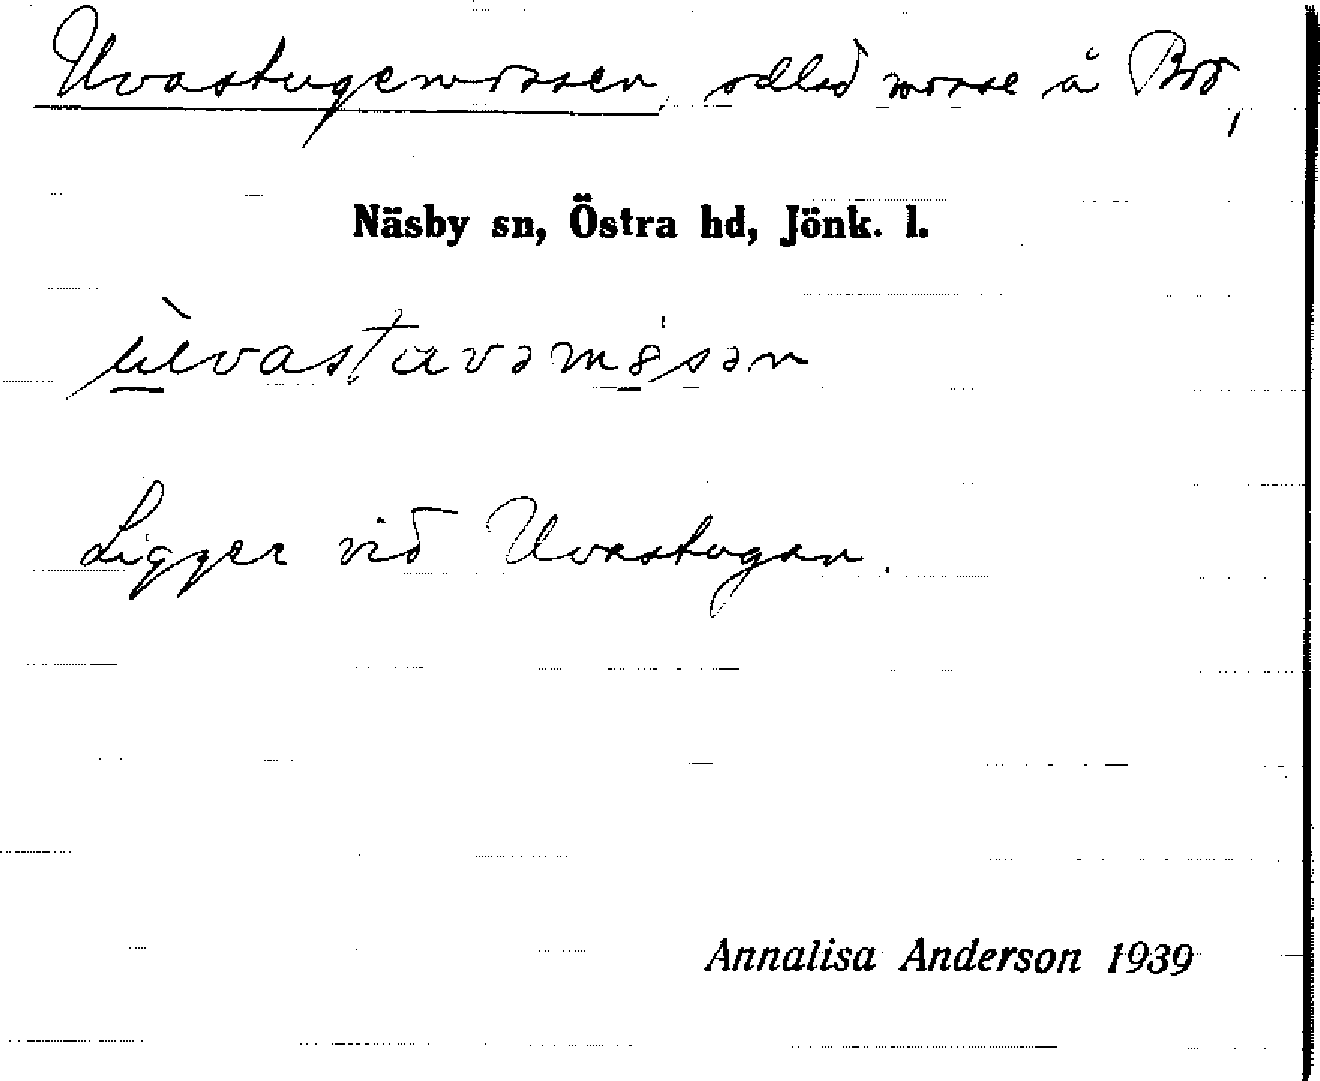 Uvastugemossen, odlad mosse å Bro,
Näsby sn, Östra hd, Jönk. l.
Ligger vid Uvastugan.
Annalisa Anderson 1939